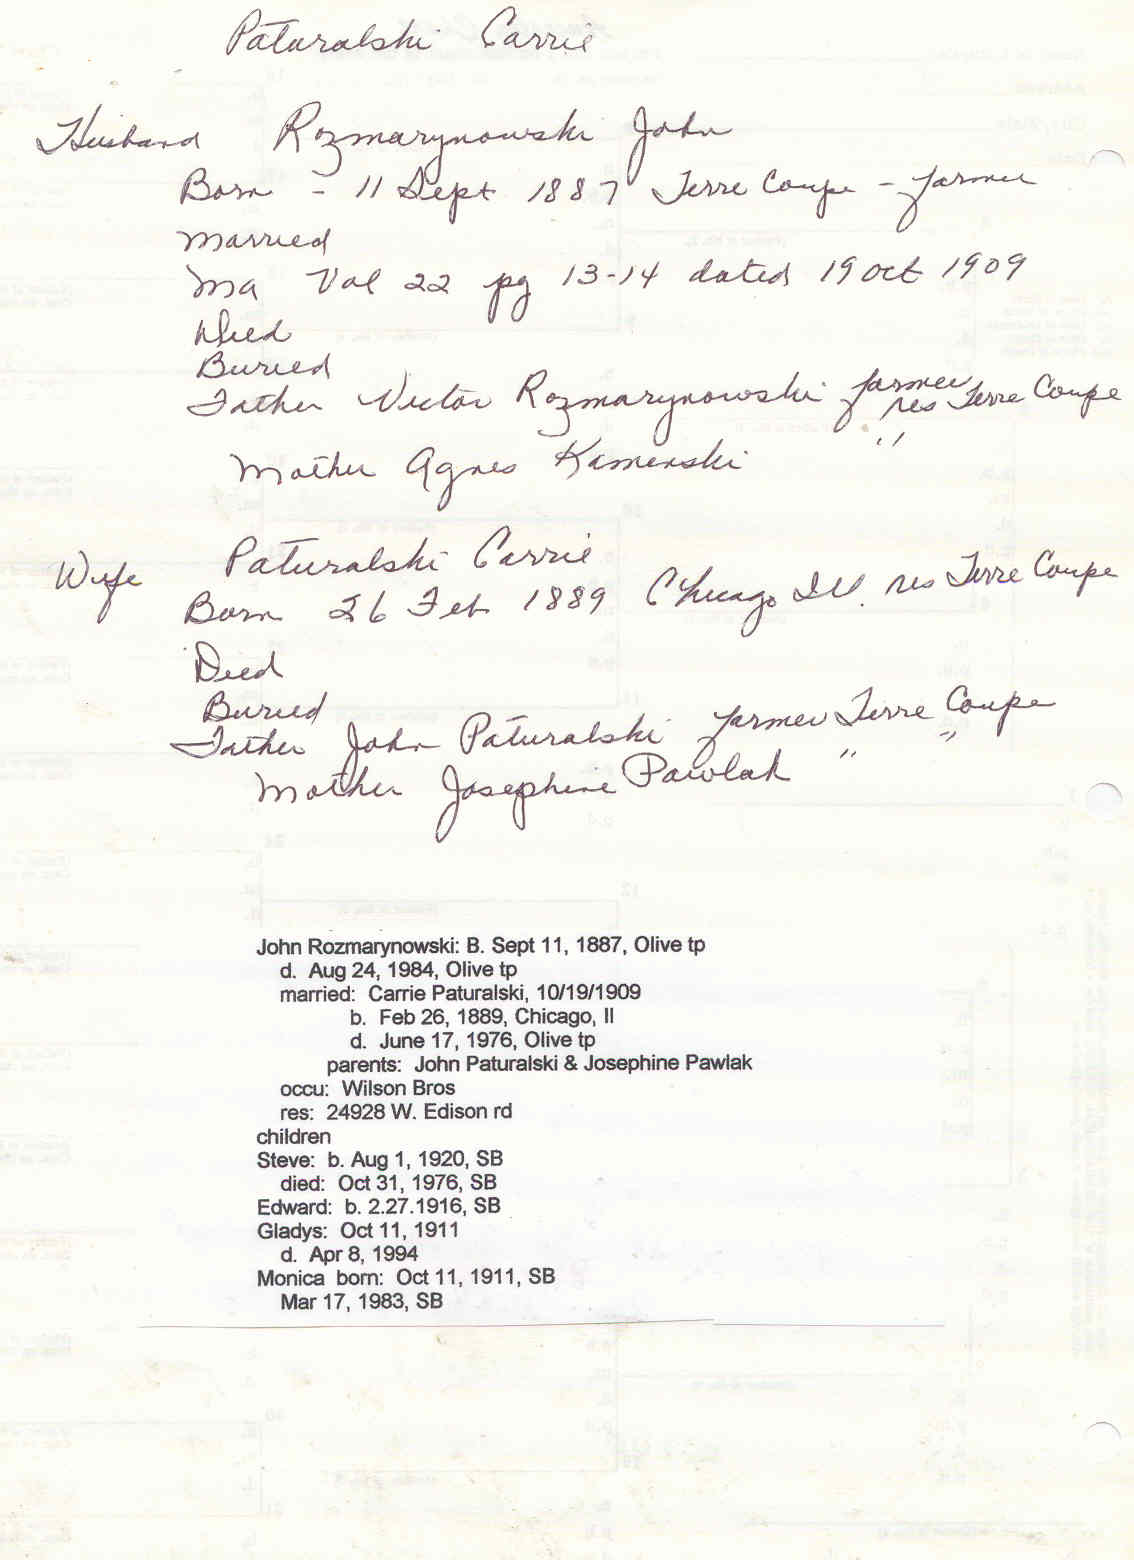 Paturalski Carrie
Husband Rozmarynowski John
Born - 11 Sept 1887 Terre Coupe - farmer
Married
Ma Vol 22 pg 13-14 dated 19 Oct 1909
Died
Buried
Father Victor Rozmarynowski farmer res Terre Coupe
Mother Agnes Kamenski "
Wife Paturalski Carrie
Born 26 Feb 1889 Chicago Ill. res Terre Coupe
Died
Buried
Father John Paturalski farmer Terre Coupe
Mother Josephine Pawlak " "
John Rozmarynowski: B. Sept 11, 1887, Olive tp
d. Aug 24, 1984, Olive tp
married: Carrie Paturalski, 10/19/1909
b. Feb 26, 1889, Chicago, Il
d. June 17, 1976, Olive tp
parents: John Paturalski & Josephine Pawlak
occu: Wilson Bros
res: 24928 W. Edison rd
children
Steve: b. Aug 1, 1920, SB
died: Oct 31, 1976, SB
Edward: b. 2.27.1916, SB
Gladys: Oct 11, 1911
d. Apr 8, 1994
Monica born: Oct 11, 1911, SB
Mar 17, 1983, SB